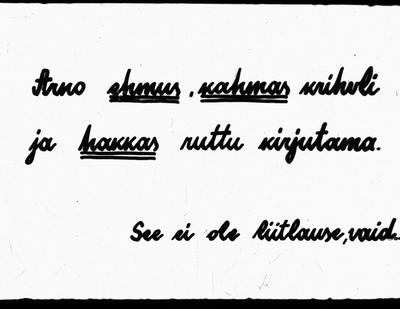 Arno ehmus, kahmas krihvli
ja hakkas ruttu kirjutama.
See ei ole liitlause, vaid...